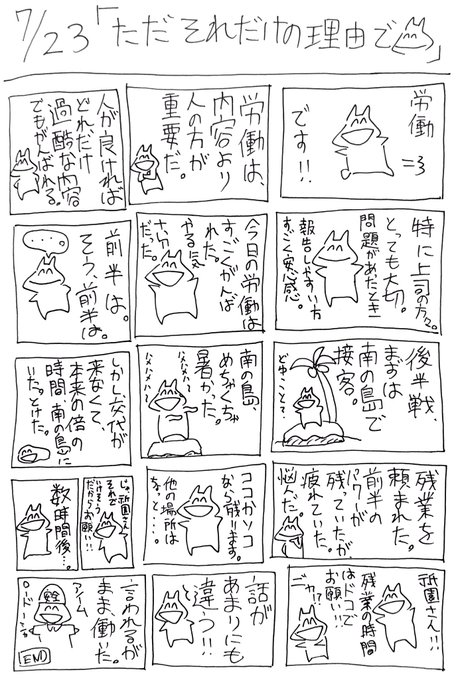 7/23「ただそれだけの理由で」
労働
です!!
労働は、
内容より
人の方が
重要だ。
人が良ければ
どれだけ
過酷な内容
でもがんばれる。
特に上司の方々。
とっても大切。
問題があたとき
報告しやすい方
すごく安心感。
今日の労働は
すごくがんば
れた。
やる気
ナシ
だった。
・・・。
前半は。
そう、前半は。
後半戦、
まずは
南の島で
接客。
どゆことて?
南の島、
めちゃくちゃ
暑かった。
ハァハァハァ
ハァハァハァ
しかし交代が
来なくて、
本来の倍の
時間、南の島に
いた。とけた。
残業を
頼まれた。
前半の
パワーが
残っていたが
疲れていた。
悩んだ。
ココかソコ
なら残ります。
他の場所は
ちょっと・・・。
じゃ祇園さん
それで
いけそう
だからお願い!!
数時間後・・・
祇園さん!!
残業の時間
はドコで
お願い!!
話が
あまりにも
違う!!
言われるが
まま、働いた。
アイム
ロードー!てる
[END]